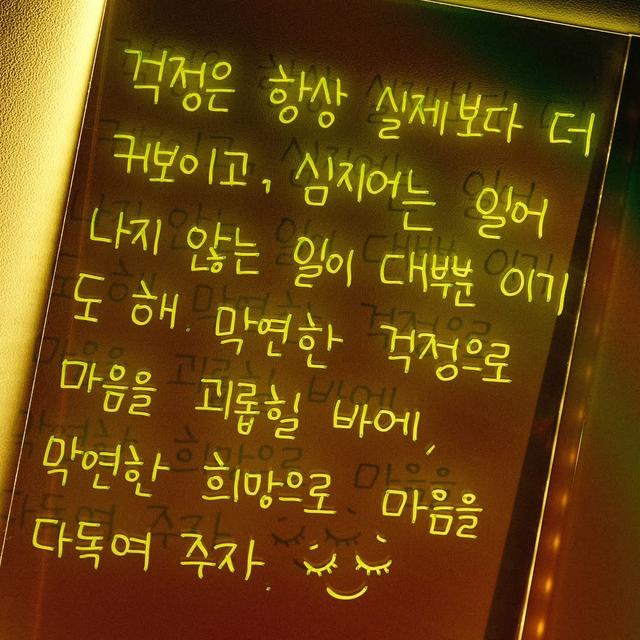 걱정은 항상 실제보다 더
커보이고, 심지어는 일어
나지 않는 일이 대부분 이기
도 해. 막연한 걱정으로
마음을 괴롭힐 바에,
막연한 희망으로 마음을
다독여 주자.